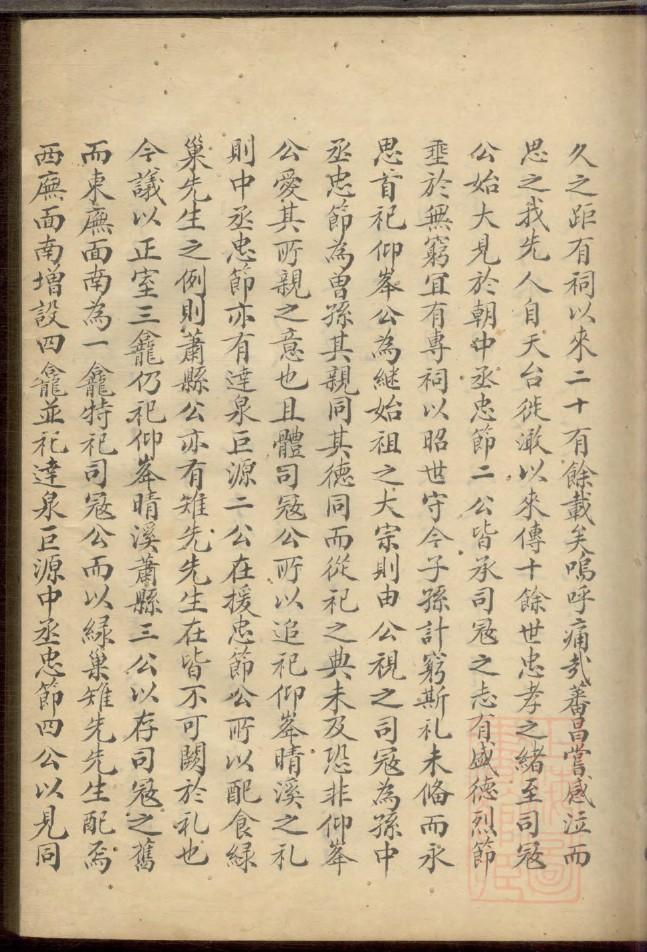 久之距有祠以來二十有餘載矣嗚呼痛㢤蕃昌嘗感泣而
思之我先人自天台徙澉以來傳十餘世忠孝之緒至司宼
公始大見於朝中丞忠節二公皆承司宼之志有盛德烈節
埀於無窮宜有專祠以昭世守今子孫計窮斯礼未備而永
思首祀仰峯公為継始祖之大宗則由公視之司宼為孫中
丞忠節為曽孫其親同其德同而從祀之典未及恐非仰峯
公愛其所親之意也且體司宼公所以追祀仰峯晴溪之礼
則中丞忠節亦有達泉巨源二公在援忠節公所以配食緑
巢先生之例則蕭縣公亦有雉先先生在皆不可闕於礼也
今議以正室三龕仍祀仰峯晴溪蕭縣三公以存司宼之舊
而東廡面南為一龕特祀司宼公而以緑巢雉先先生配焉
西廡面南增設四龕並祀達泉巨源中丞忠節四公以見同